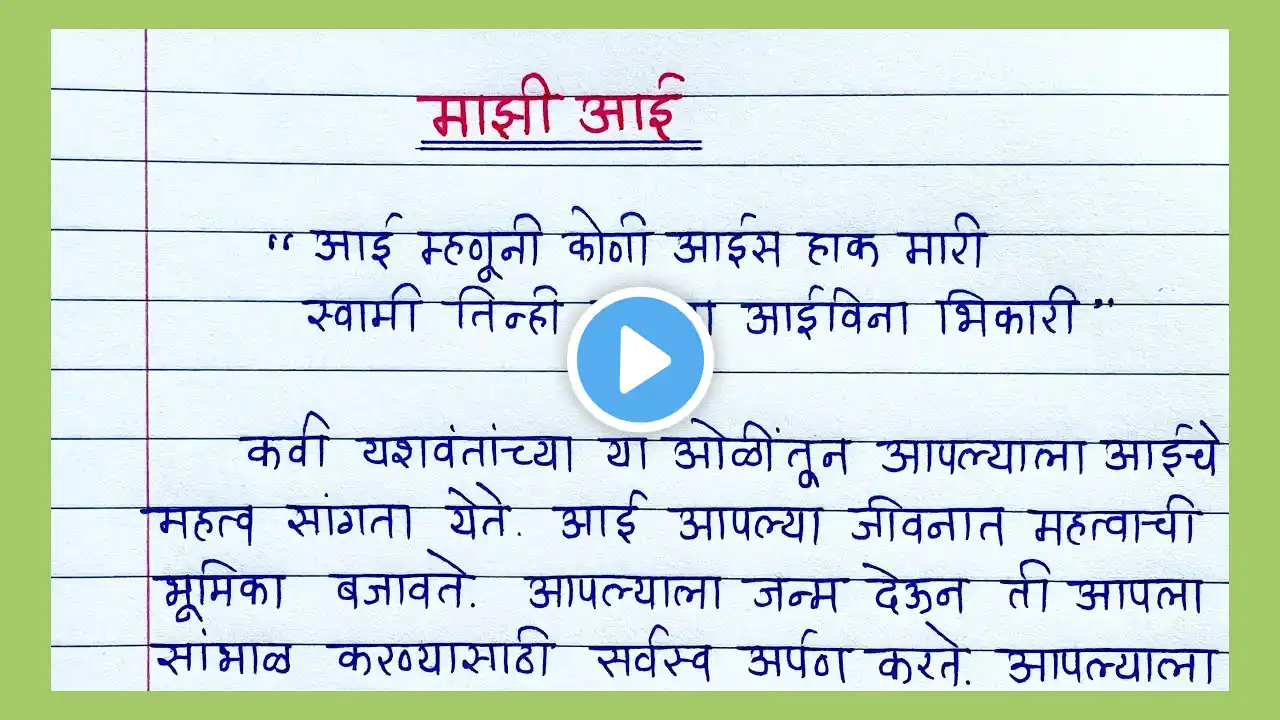 माझी आई
"आई म्हणूनी कोणी आईस हाक मारी
स्वामी तिन्ही आईविना भिकारी"
कवी यशवंतांच्या या ओळींतून आपल्याला आईचे
महत्व सांगता येते. आई आपल्या जीवनात महत्वाची
भूमिका बजावते. आपल्याला जन्म देऊन ती आपला
सांभाळ करण्यासाठी सर्वस्व अर्पण करते. आपल्याला